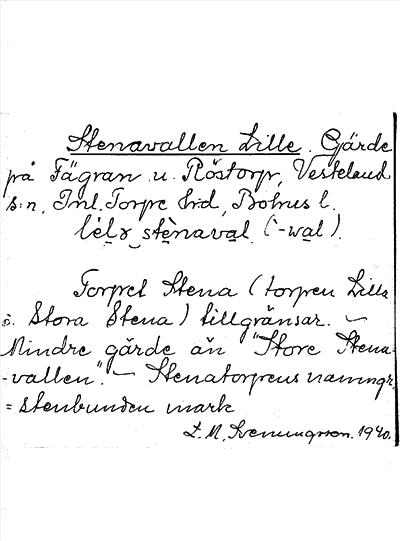 Stenavallen Lille. Gärde
på Fägran u. Röstorp, Vesteland
s:n, Inl. Torpe hrd, Bohus l.
lèlɤ stènaval (-wal).
Torpet Stena (torpen Lilla
o. Stora Stena) tillgränsar. —
Mindre gärde än "Store Stena-
-vallen". — Stenatorpens namngr.
= stenbunden mark
L. M. Svenungsson. 1940.